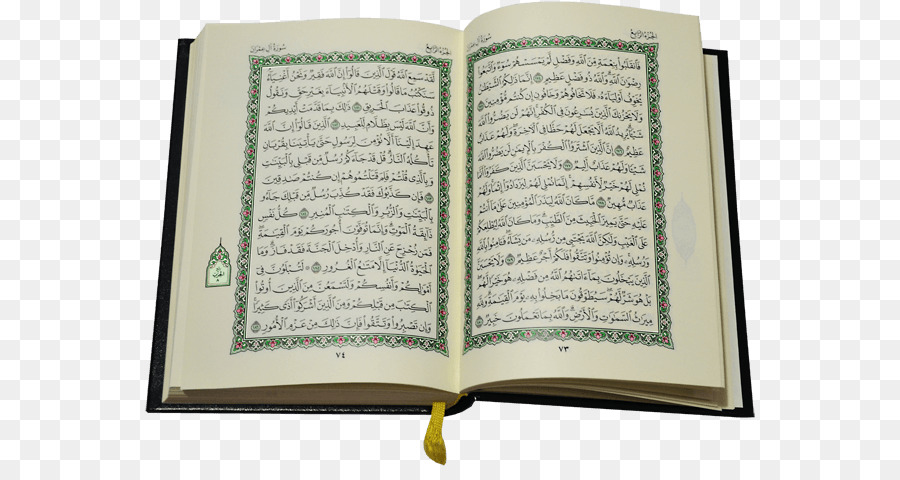 الجُزْءُ الرَّابِعُ
سُورَةُ آلِ عِمْرَانَ
فَٱنقَلَبُواْ بِنِعْمَةٍ مِّنَ ٱللَّهِ وَفَضْلٍ لَّمْ يَمْسَسْهُمْ سُوٓءٌ وَٱتَّبَعُواْ
رِضْوَٰنَ ٱللَّهِ وَٱللَّهُ ذُو فَضْلٍ عَظِيمٍ ١٧٤ إِنَّمَا ذَٰلِكُمُ ٱلشَّيْطَٰنُ
يُخَوِّفُ أَوْلِيَآءَهُۥ فَلَا تَخَافُوهُمْ وَخَافُونِ إِن كُنتُم مُّؤْمِنِينَ ١٧٥
وَلَا يَحْزُنكَ ٱلَّذِينَ يُسَٰرِعُونَ فِى ٱلْكُفْرِ إِنَّهُمْ لَن يَضُرُّواْ ٱللَّهَ
شَيْـًٔا يُرِيدُ ٱللَّهُ أَلَّا يَجْعَلَ لَهُمْ حَظًّا فِى ٱلْءَاخِرَةِ وَلَهُمْ عَذَابٌ
عَظِيمٌ ١٧٦ إِنَّ ٱلَّذِينَ ٱشْتَرَوُاْ ٱلْكُفْرَ بِٱلْإِيمَٰنِ لَن يَضُرُّواْ ٱللَّهَ
شَيْـًٔا وَلَهُمْ عَذَابٌ أَلِيمٌ ١٧٧ وَلَا يَحْسَبَنَّ ٱلَّذِينَ كَفَرُوٓاْ أَنَّمَا
نُمْلِى لَهُمْ خَيْرٌ لِّأَنفُسِهِمْ إِنَّمَا نُمْلِى لَهُمْ لِيَزْدَادُوٓاْ إِثْمًا وَلَهُمْ
عَذَابٌ مُّهِينٌ ١٧٨ مَّا كَانَ ٱللَّهُ لِيَذَرَ ٱلْمُؤْمِنِينَ عَلَىٰ مَآ أَنتُمْ
عَلَيْهِ حَتَّىٰ يَمِيزَ ٱلْخَبِيثَ مِنَ ٱلطَّيِّبِ وَمَا كَانَ ٱللَّهُ لِيُطْلِعَكُمْ
عَلَى ٱلْغَيْبِ وَلَٰكِنَّ ٱللَّهَ يَجْتَبِى مِن رُّسُلِهِۦ مَن يَشَآءُ فَـَٔامِنُواْ بِٱللَّهِ
وَرُسُلِهِۦ وَإِن تُؤْمِنُواْ وَتَتَّقُواْ فَلَكُمْ أَجْرٌ عَظِيمٌ ١٧٩ وَلَا يَحْسَبَنَّ
ٱلَّذِينَ يَبْخَلُونَ بِمَآ ءَاتَىٰهُمُ ٱللَّهُ مِن فَضْلِهِۦ هُوَ خَيْرًا لَّهُم
بَلْ هُوَ شَرٌّ لَّهُمْ سَيُطَوَّقُونَ مَا بَخِلُواْ بِهِۦ يَوْمَ ٱلْقِيَٰمَةِ وَلِلَّهِ
مِيرَٰثُ ٱلسَّمَٰوَٰتِ وَٱلْأَرْضِ وَٱللَّهُ بِمَا تَعْمَلُونَ خَبِيرٌ ١٨٠
٧٣
الجُزْءُ الرَّابِعُ
سُورَةُ آلِ عِمْرَانَ
لَّقَدْ سَمِعَ ٱللَّهُ قَوْلَ ٱلَّذِينَ قَالُوٓاْ إِنَّ ٱللَّهَ فَقِيرٌ وَنَحْنُ أَغْنِيَآءُ
سَنَكْتُبُ مَا قَالُواْ وَقَتْلَهُمُ ٱلْأَنۢبِيَآءَ بِغَيْرِ حَقٍّ وَنَقُولُ
ذُوقُواْ عَذَابَ ٱلْحَرِيقِ ١٨١ ذَٰلِكَ بِمَا قَدَّمَتْ أَيْدِيكُمْ
وَأَنَّ ٱللَّهَ لَيْسَ بِظَلَّامٍ لِّلْعَبِيدِ ١٨٢ ٱلَّذِينَ قَالُوٓاْ إِنَّ ٱللَّهَ
عَهِدَ إِلَيْنَآ أَلَّا نُؤْمِنَ لِرَسُولٍ حَتَّىٰ يَأْتِيَنَا بِقُرْبَانٍ
تَأْكُلُهُ ٱلنَّارُ قُلْ قَدْ جَآءَكُمْ رُسُلٌ مِّن قَبْلِى بِٱلْبَيِّنَٰتِ
وَبِٱلَّذِى قُلْتُمْ فَلِمَ قَتَلْتُمُوهُمْ إِن كُنتُمْ صَٰدِقِينَ
١٨٣ فَإِن كَذَّبُوكَ فَقَدْ كُذِّبَ رُسُلٌ مِّن قَبْلِكَ جَآءُو
بِٱلْبَيِّنَٰتِ وَٱلزُّبُرِ وَٱلْكِتَٰبِ ٱلْمُنِيرِ ١٨٤ كُلُّ نَفْسٍ
ذَآئِقَةُ ٱلْمَوْتِ وَإِنَّمَا تُوَفَّوْنَ أُجُورَكُمْ يَوْمَ ٱلْقِيَٰمَةِ
فَمَن زُحْزِحَ عَنِ ٱلنَّارِ وَأُدْخِلَ ٱلْجَنَّةَ فَقَدْ فَازَ وَمَا
ٱلْحَيَوٰةُ ٱلدُّنْيَآ إِلَّا مَتَٰعُ ٱلْغُرُورِ ١٨٥ لَتُبْلَوُنَّ فِىٓ
أَمْوَٰلِكُمْ وَأَنفُسِكُمْ وَلَتَسْمَعُنَّ مِنَ ٱلَّذِينَ أُوتُواْ
ٱلْكِتَٰبَ مِن قَبْلِكُمْ وَمِنَ ٱلَّذِينَ أَشْرَكُوٓاْ أَذًى كَثِيرًا
وَإِن تَصْبِرُواْ وَتَتَّقُواْ فَإِنَّ ذَٰلِكَ مِنْ عَزْمِ ٱلْأُمُورِ ١٨٦
٧٤